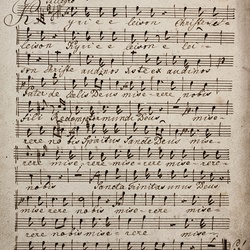 Allegro
Kyrie e leison Christe e
leison Kyrie e leison e lei
son Christe audi nos Christe ex audi nos
Pater de Coelis Deus mise rere nobis
Fili Redemptor mundi Deus mise
rere nobis Spiritus Sancte Deus mise
rere mise rere mise rere mise rere
nobis Sancta Trinitas unus Deus
mise rere nobis mise rere mise
rere mise rere mise rere